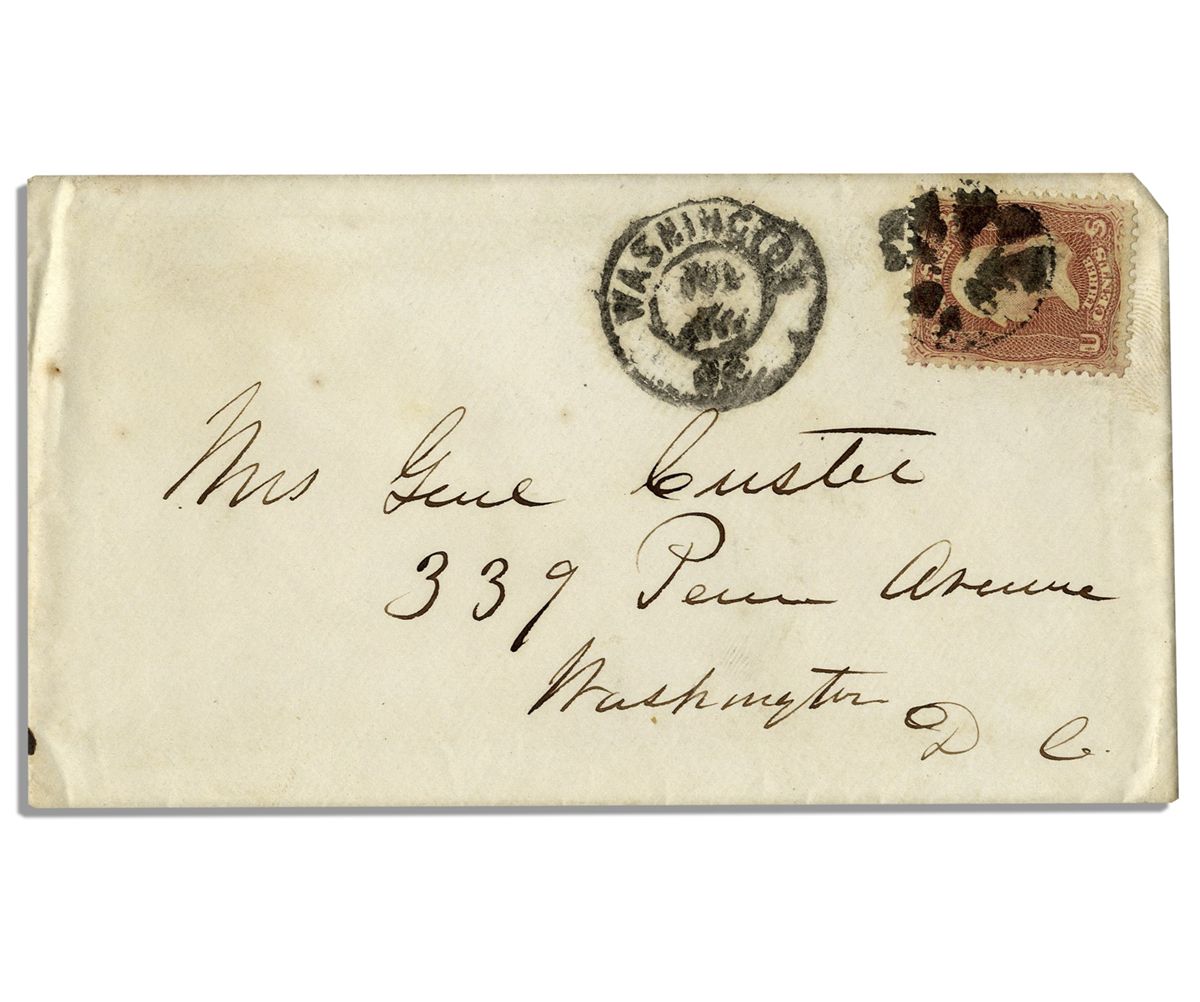 WASHINGTON
U S
THREE CENTS
Mrs Genl Custer
339 Penn Avenue
Washington
D C.